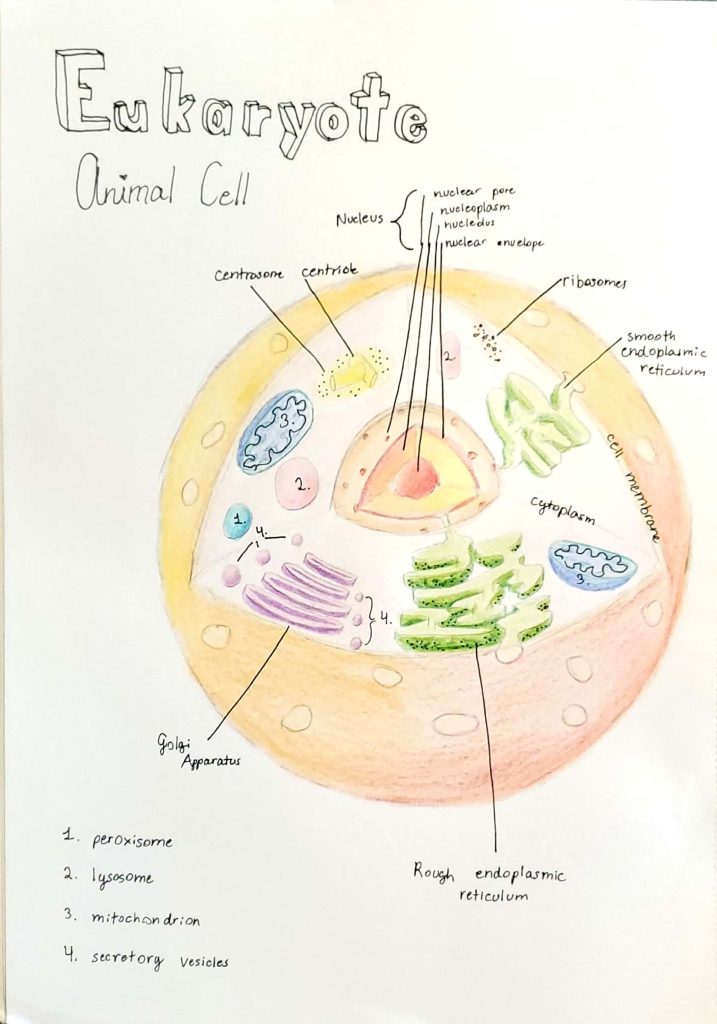 Eukaryote
Animal Cell
Nucleus
nuclear pore
nucleoplasm
nucleolus
nuclear envelope
centrosome centriole
ribosomes
smooth
endoplasmic
reticulum
cell membrane
cytoplasm
2.
3.
2.
1.
4.
3.
4.
Golgi
Apparatus
Rough endoplasmic
reticulum
1. peroxisome
2. lysosome
3. mitochondrion
4. secretory vesicles